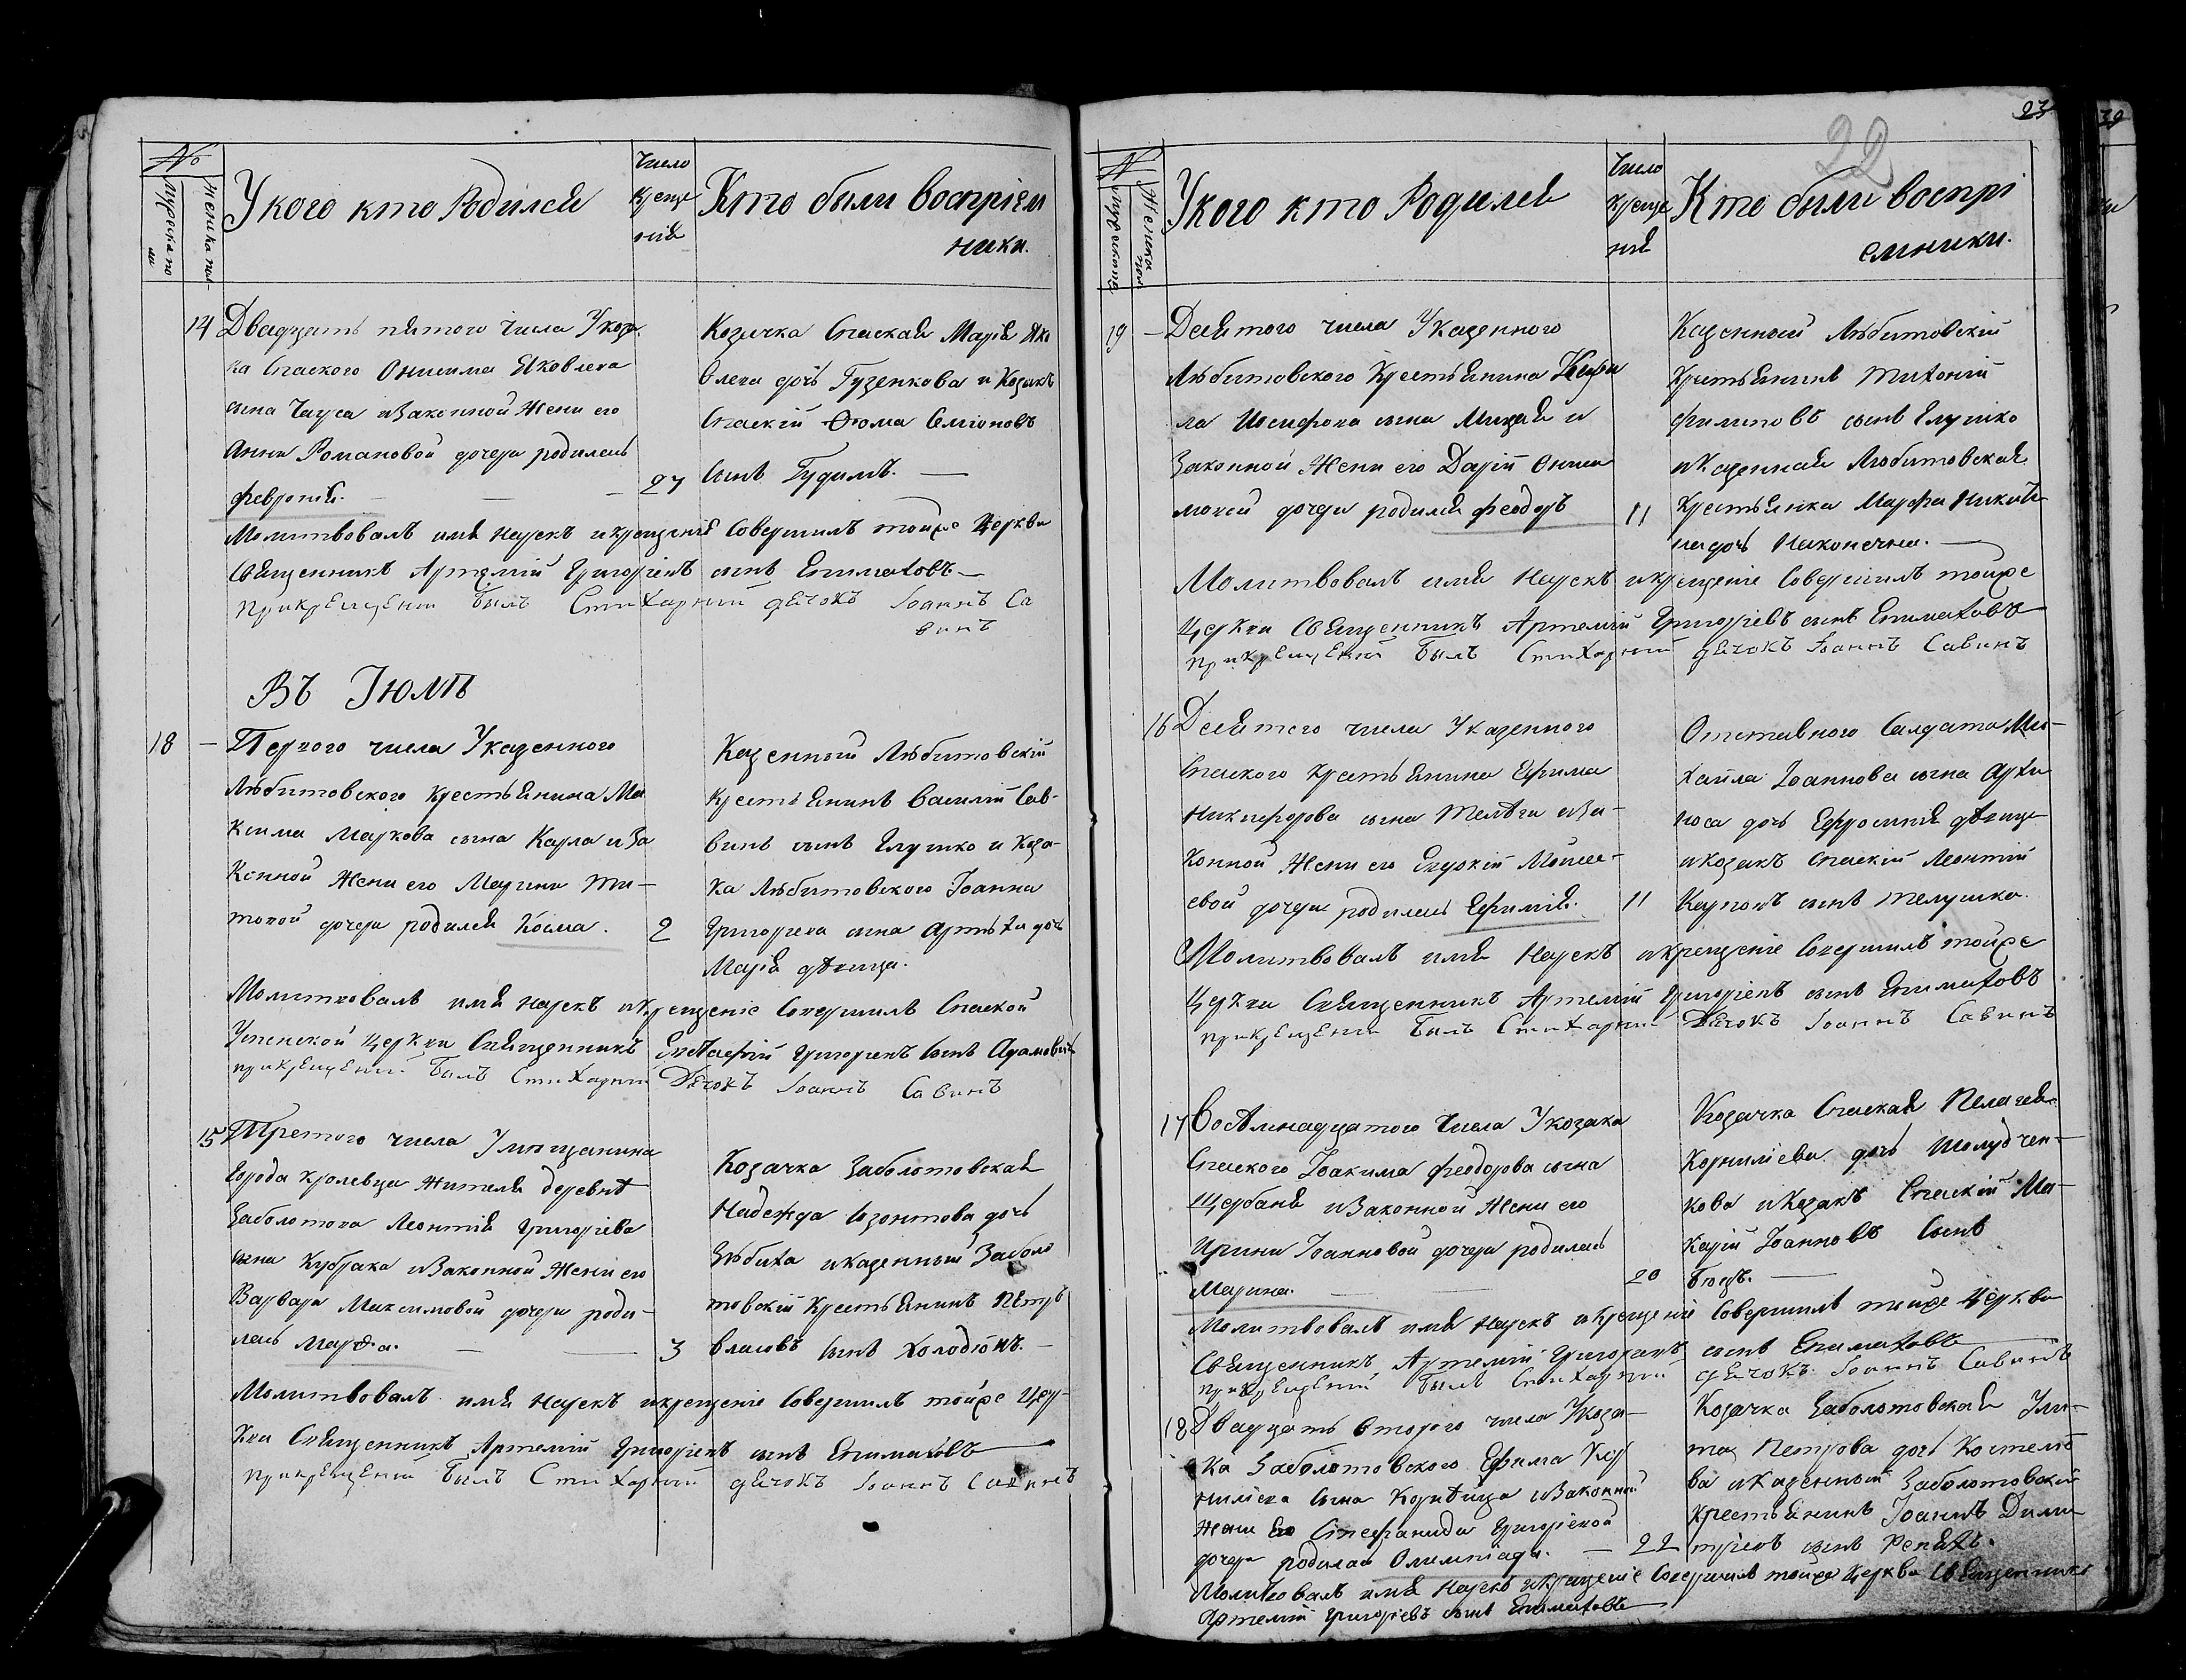 №
Мужеска по
ла
Женска пол
У кого кто Родился
Число
Креще
нія
Кто были воспріем
ники.
14 Двадцать пятого числа У коза
ка Спаского Онисима Яковлева
сына Чауса и Законной Жени его
Анни Романовой дочери родилась
Февронія. — — — 27
Козачка Спаская Марія Яко
влева дочь Гузенкова и Козакъ
Спаскій Фома Семіоновъ
сынъ Гудимъ. —
Молитвовалъ имя нарекъ и крещеніе совершилъ тойже Церкви
Священникъ Артемій Григоріевъ сынъ Епиматовъ —
при крещеніи былъ Стихарній дячокъ Іоаннъ Са
винъ
Въ Іюлѣ
18 — Первого числа У казенного
Любитовского крестьянина Ма
ксима Маркова сына Карла и За
конной Жени его Марини Ти-
товой дочери родился Косма. 2
Казенной Любитовскій
крестьянинъ Василій Сав-
винъ сынъ Глушко и Коза-
ка Любитовского Іоанна
Григорева сына Артюха дочь
Марія дѣвица.
Молитвовалъ имя нарекъ и крещеніе совершилъ Спаской
Успенской церкви Священникъ Евстафій Григоріевъ сынъ Адамовичъ
при крещеніи былъ Стихарній Дячокъ Іоаннъ Савинъ
15 Третого числа У мѣщанина
города Кролевца жителя деревнѣ
Заболотова Леонтія Григоріева
сына Кубрака и Законной Жени его
Варвари Максимовой дочери роди-
лась Марѳа. — — 3
Козачка Заболотовская
Надежда Изонтова дочь
Зюбиха и казенный Заболо
товскій Крестьянинъ Петръ
Власовъ сынъ Холодіонъ. —
Молитвовалъ имя нарекъ и крещеніе совершилъ тойже Цер-
кви Священникъ Артемій Григоріевъ сынъ Епиматовъ
при крещеніи былъ Стихарній дячокъ Іоаннъ Савинъ
23
22
№
Мужеска пола
Женска
пол
У кого кто Родился
Число
креще
ния
Кто были воспрі
емники.
19 — Десятого числа У казенного
Любитовского Крестьянина Кири
ла Иосифова сына Мицая и
Законной Жени его Даріи Ониси
мовой дочери родился Феодоръ 11
Казенной Любитовскій
Крестьянинъ Тихоній
Филиповъ сынъ Глушко
и казенная Любитовская
Крестьянка Марфа Никити
на дочь Наконечна. —
Молитвовалъ имя Нарекъ и крещеніе совершилъ тойже
церкви Священникъ Артемій Григоріевъ сынъ Епиматовъ
при крещеніи былъ Стихарній дячокъ Іоаннъ Савинъ
16 Десятого числа У казенного
Спаского крестьянина Ефима
Никифорова сына Телѣги и За-
конной Жени его Евдокіи Моисе-
евой дочери родилась Ефимія. 11
Отставного Салдата Ми-
хайла Іоаннова сына Архи
поса дочь Ефросинія дѣвица
и козакъ Спаскій Леонтій
Карповъ сынъ Телушка.
Молитвовалъ имя Нарекъ и крещеніе совершилъ тойже
церкви Священникъ Артемій Григоріевъ сынъ Епиматовъ
при крещеніи былъ Стихарній Дячокъ Іоаннъ Савинъ
17 Восѣмнадцатого числа У козака
Спаского Іоакима Феодорова сына
Щербани и Законной Жени его
Ирини Іоанновой дочери родилась
Марина. — 20
Козачка Спаская Пелагея
Корниліева дочь Шолудчен-
кова и Козакъ Спаскій Ма-
карій Іоанновъ сынъ
Бюдъ. —
Молитвовалъ имя нарекъ и крещеніе совершилъ тойже Церкви
Священникъ Артемій Григоріевъ сынъ Епиматовъ
при крещеніи былъ Стихарній дячокъ Іоаннъ Савинъ
18 Двадцать второго числа У коза-
ка Заболотовского Ефима Кор
ниліева сына Корнѣйца и Законной
Жени его Стефаниди Григоріевой
дочери родилась Олимпіада. — 22
Козачка Заболотовская Ули-
та Петрова дочь Костелѣ
ва и казенный Заболотовскій
Крестьянинъ Іоаннъ Дими
тріевъ сынъ Репяхъ.
Молитвовалъ имя нарекъ и крещеніе совершилъ тойже церкви Священникъ
Артемій Григоріевъ сынъ Епиматовъ